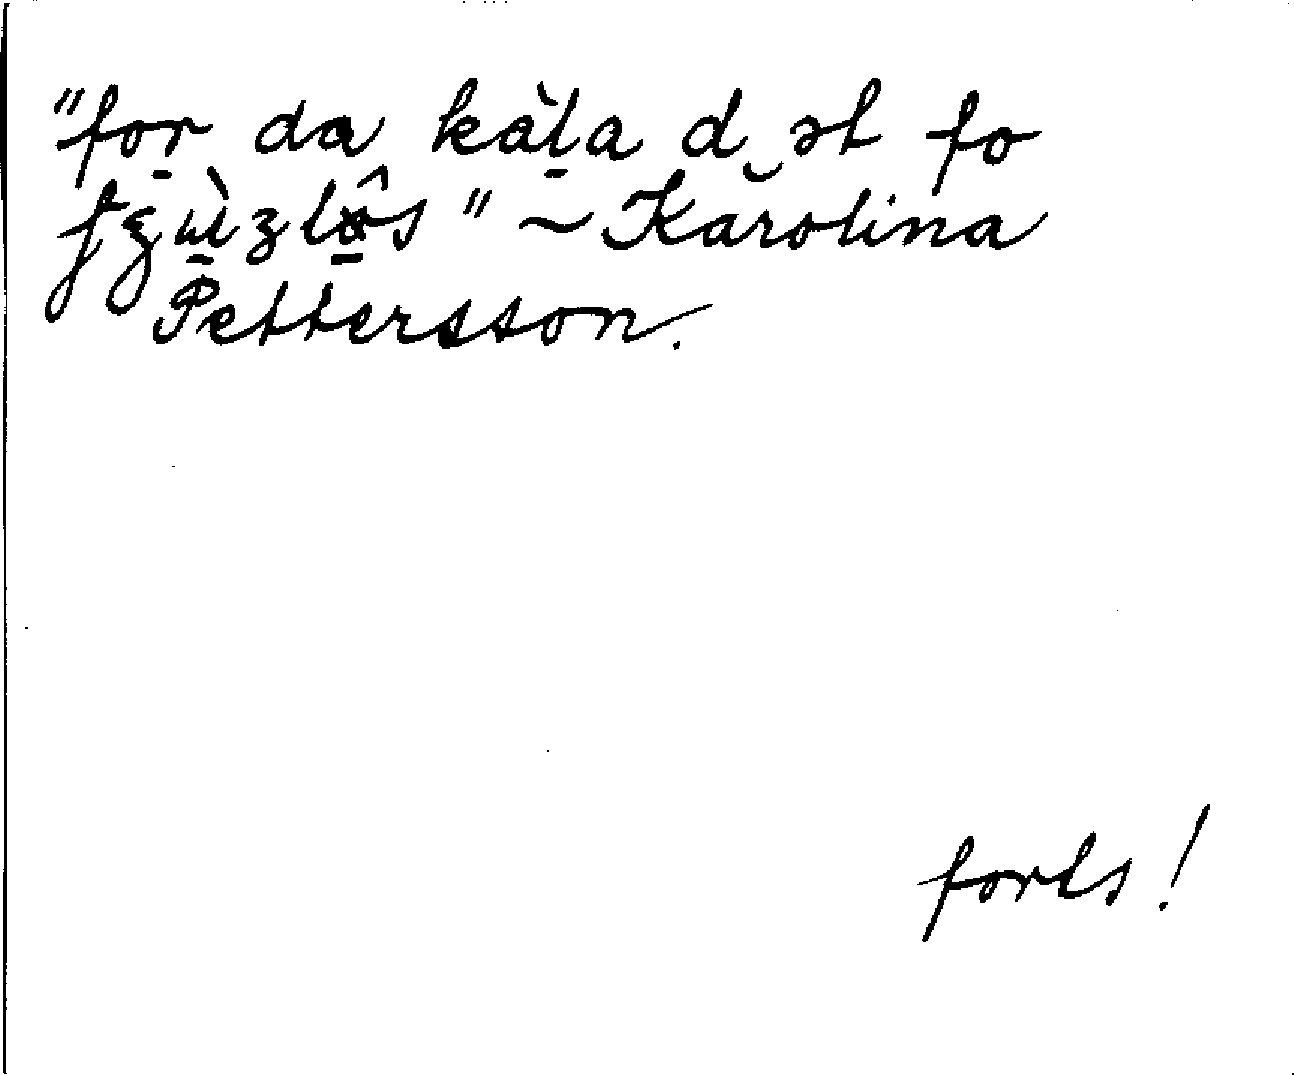 "for̠ da kàl̠a d ̮ət fo
ʄʒɯ̠̀zlô̠s" ~ Karolina
Pettersson.
forts!